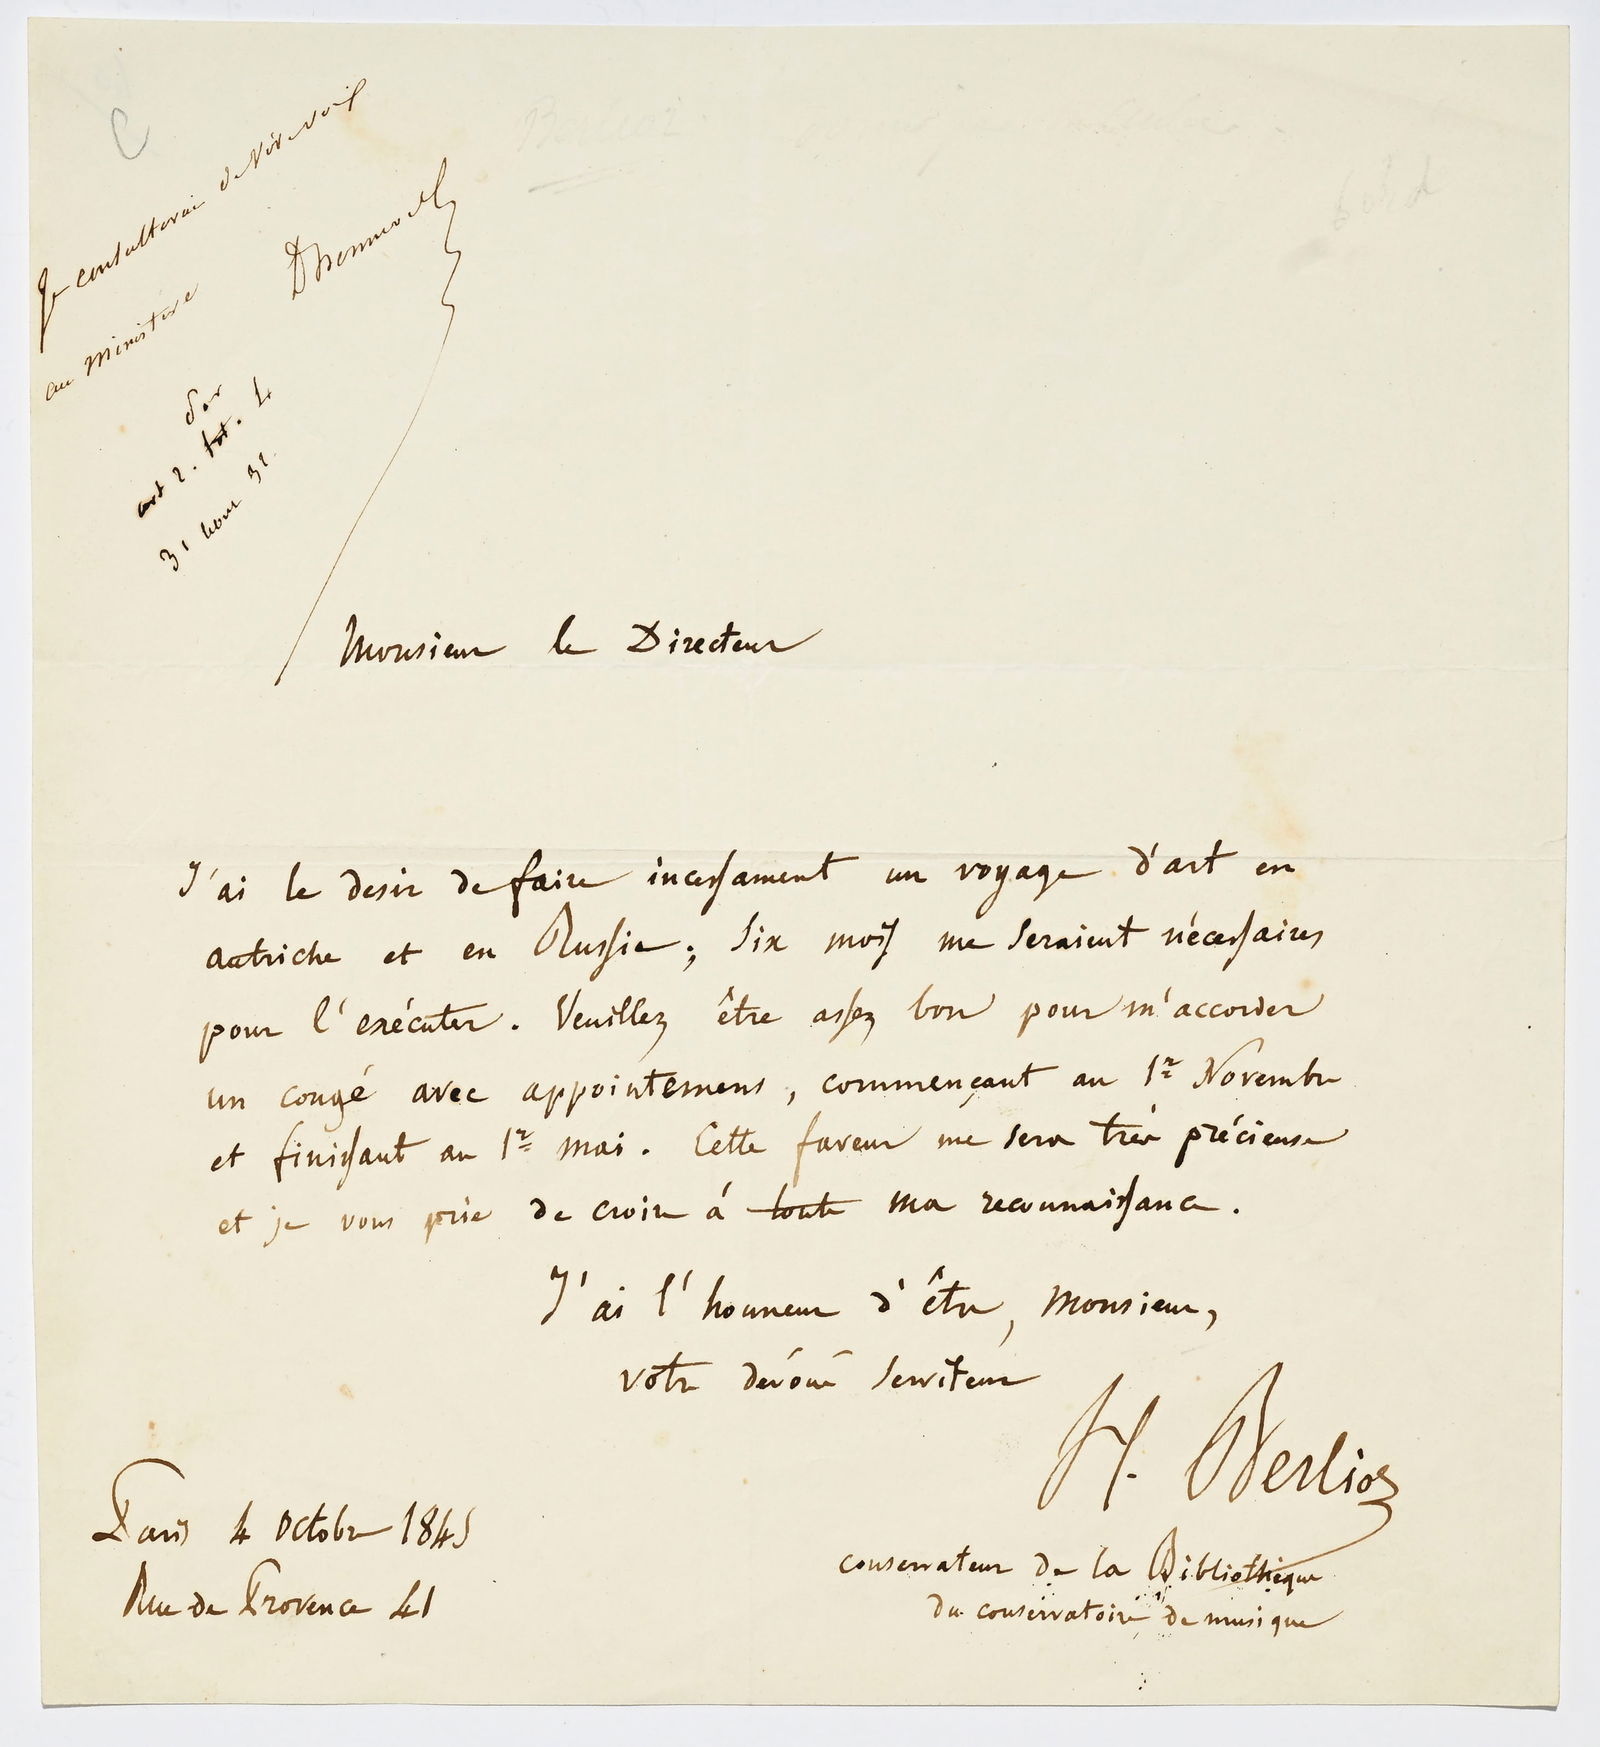 Je consulterai de vive voix
au Ministère
art 2.
31 31
Monsieur le Directeur
J'ai le desir de faire incessament un voyage d'art en
autriche et en Russie; Six mois me seraient nécessaires
pour l'exécuter. Veuillez être assez bon pour m'accorder
un congé avec appointemens, commençant au 1er Novembre
et finissant au 1er mai. Cette faveur me sera très précieuse
et je vous prie de croire à toute ma reconnaissance.
J'ai l'honneur d'être, Monsieur,
votre dévoué serviteur
H. Berlioz
conservateur de la Bibliothèque
du conservatoire de musique
Paris 4 octobre 1845
Rue de Provence 41